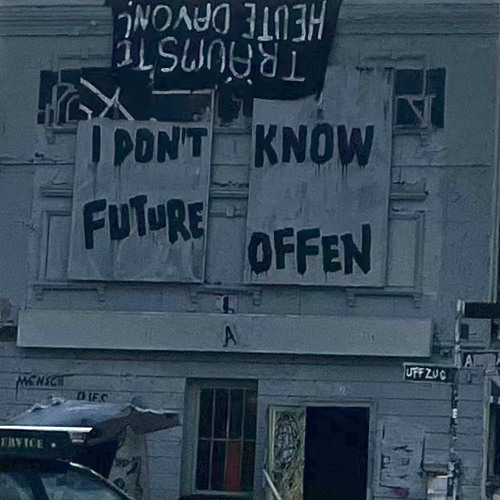 TRÄUMSTE
HEUTE DAVON?
I DON'T KNOW
FUTURE OFFEN
A
UFFZUG
A
MENSCH
DIES
ERVICE